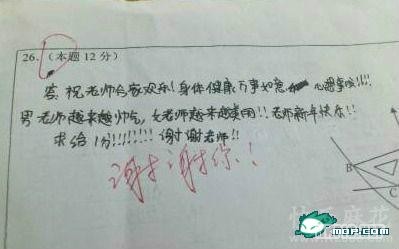 26.（本题12分）
答:祝老师合家欢乐!身体健康万事如意 心想事成!!!!
男老师越来越帅气,女老师越来越美丽!!老师新年快乐!!
求给1分!!!!!!!!谢谢老师!!
谢谢你!!
B
C
快乐麻花
MOP.COM